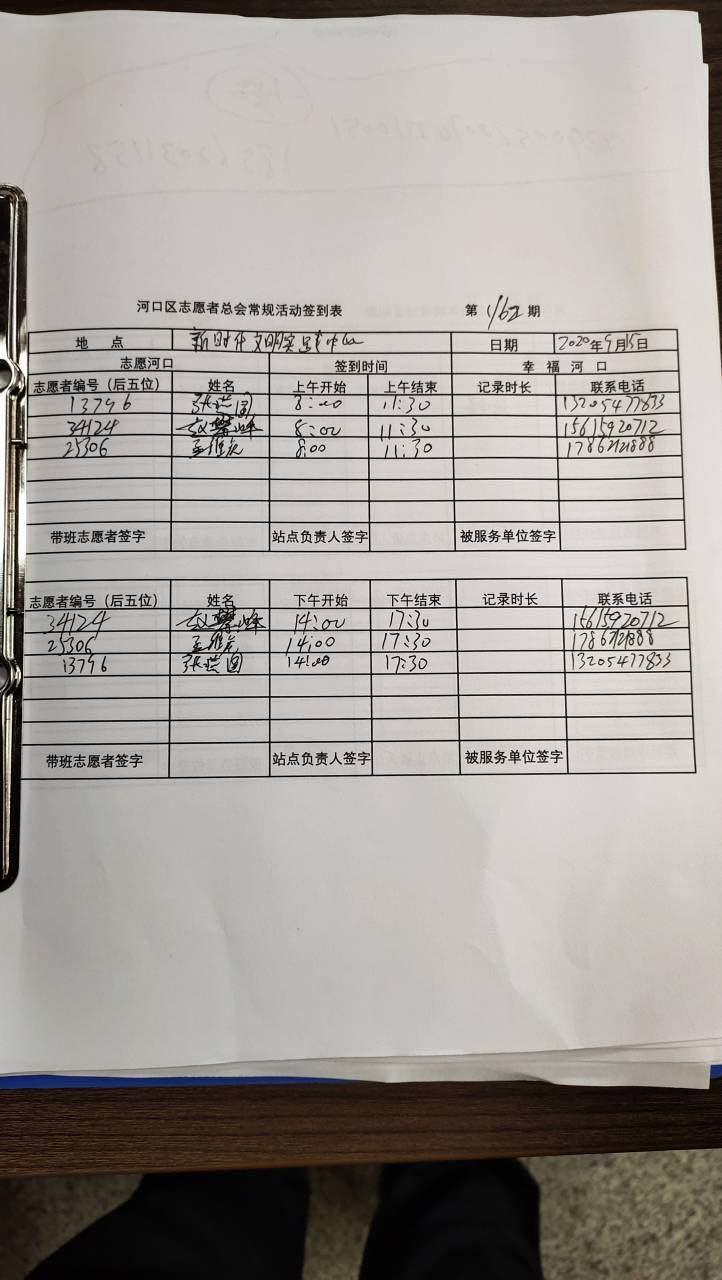 河口区志愿者总会常规活动签到表 第 1162 期
地 点 新时代文明实践中心 日期 2020年9月15日
志愿河口 签到时间 幸 福 河 口
志愿者编号（后五位） 姓名 上午开始 上午结束 记录时长 联系电话
13796 张 8:00 11:30 13205477853
34124 赵 峰 8:00 11:30 15615920712
25306 8:00 11:30
带班志愿者签字 站点负责人签字 被服务单位签字
志愿者编号（后五位） 姓名 下午开始 下午结束 记录时长 联系电话
34124 赵 峰 14:00 17:30 15615920712
25306 14:00 17:30
13796 张 14:00 17:30 13205477853
带班志愿者签字 站点负责人签字 被服务单位签字